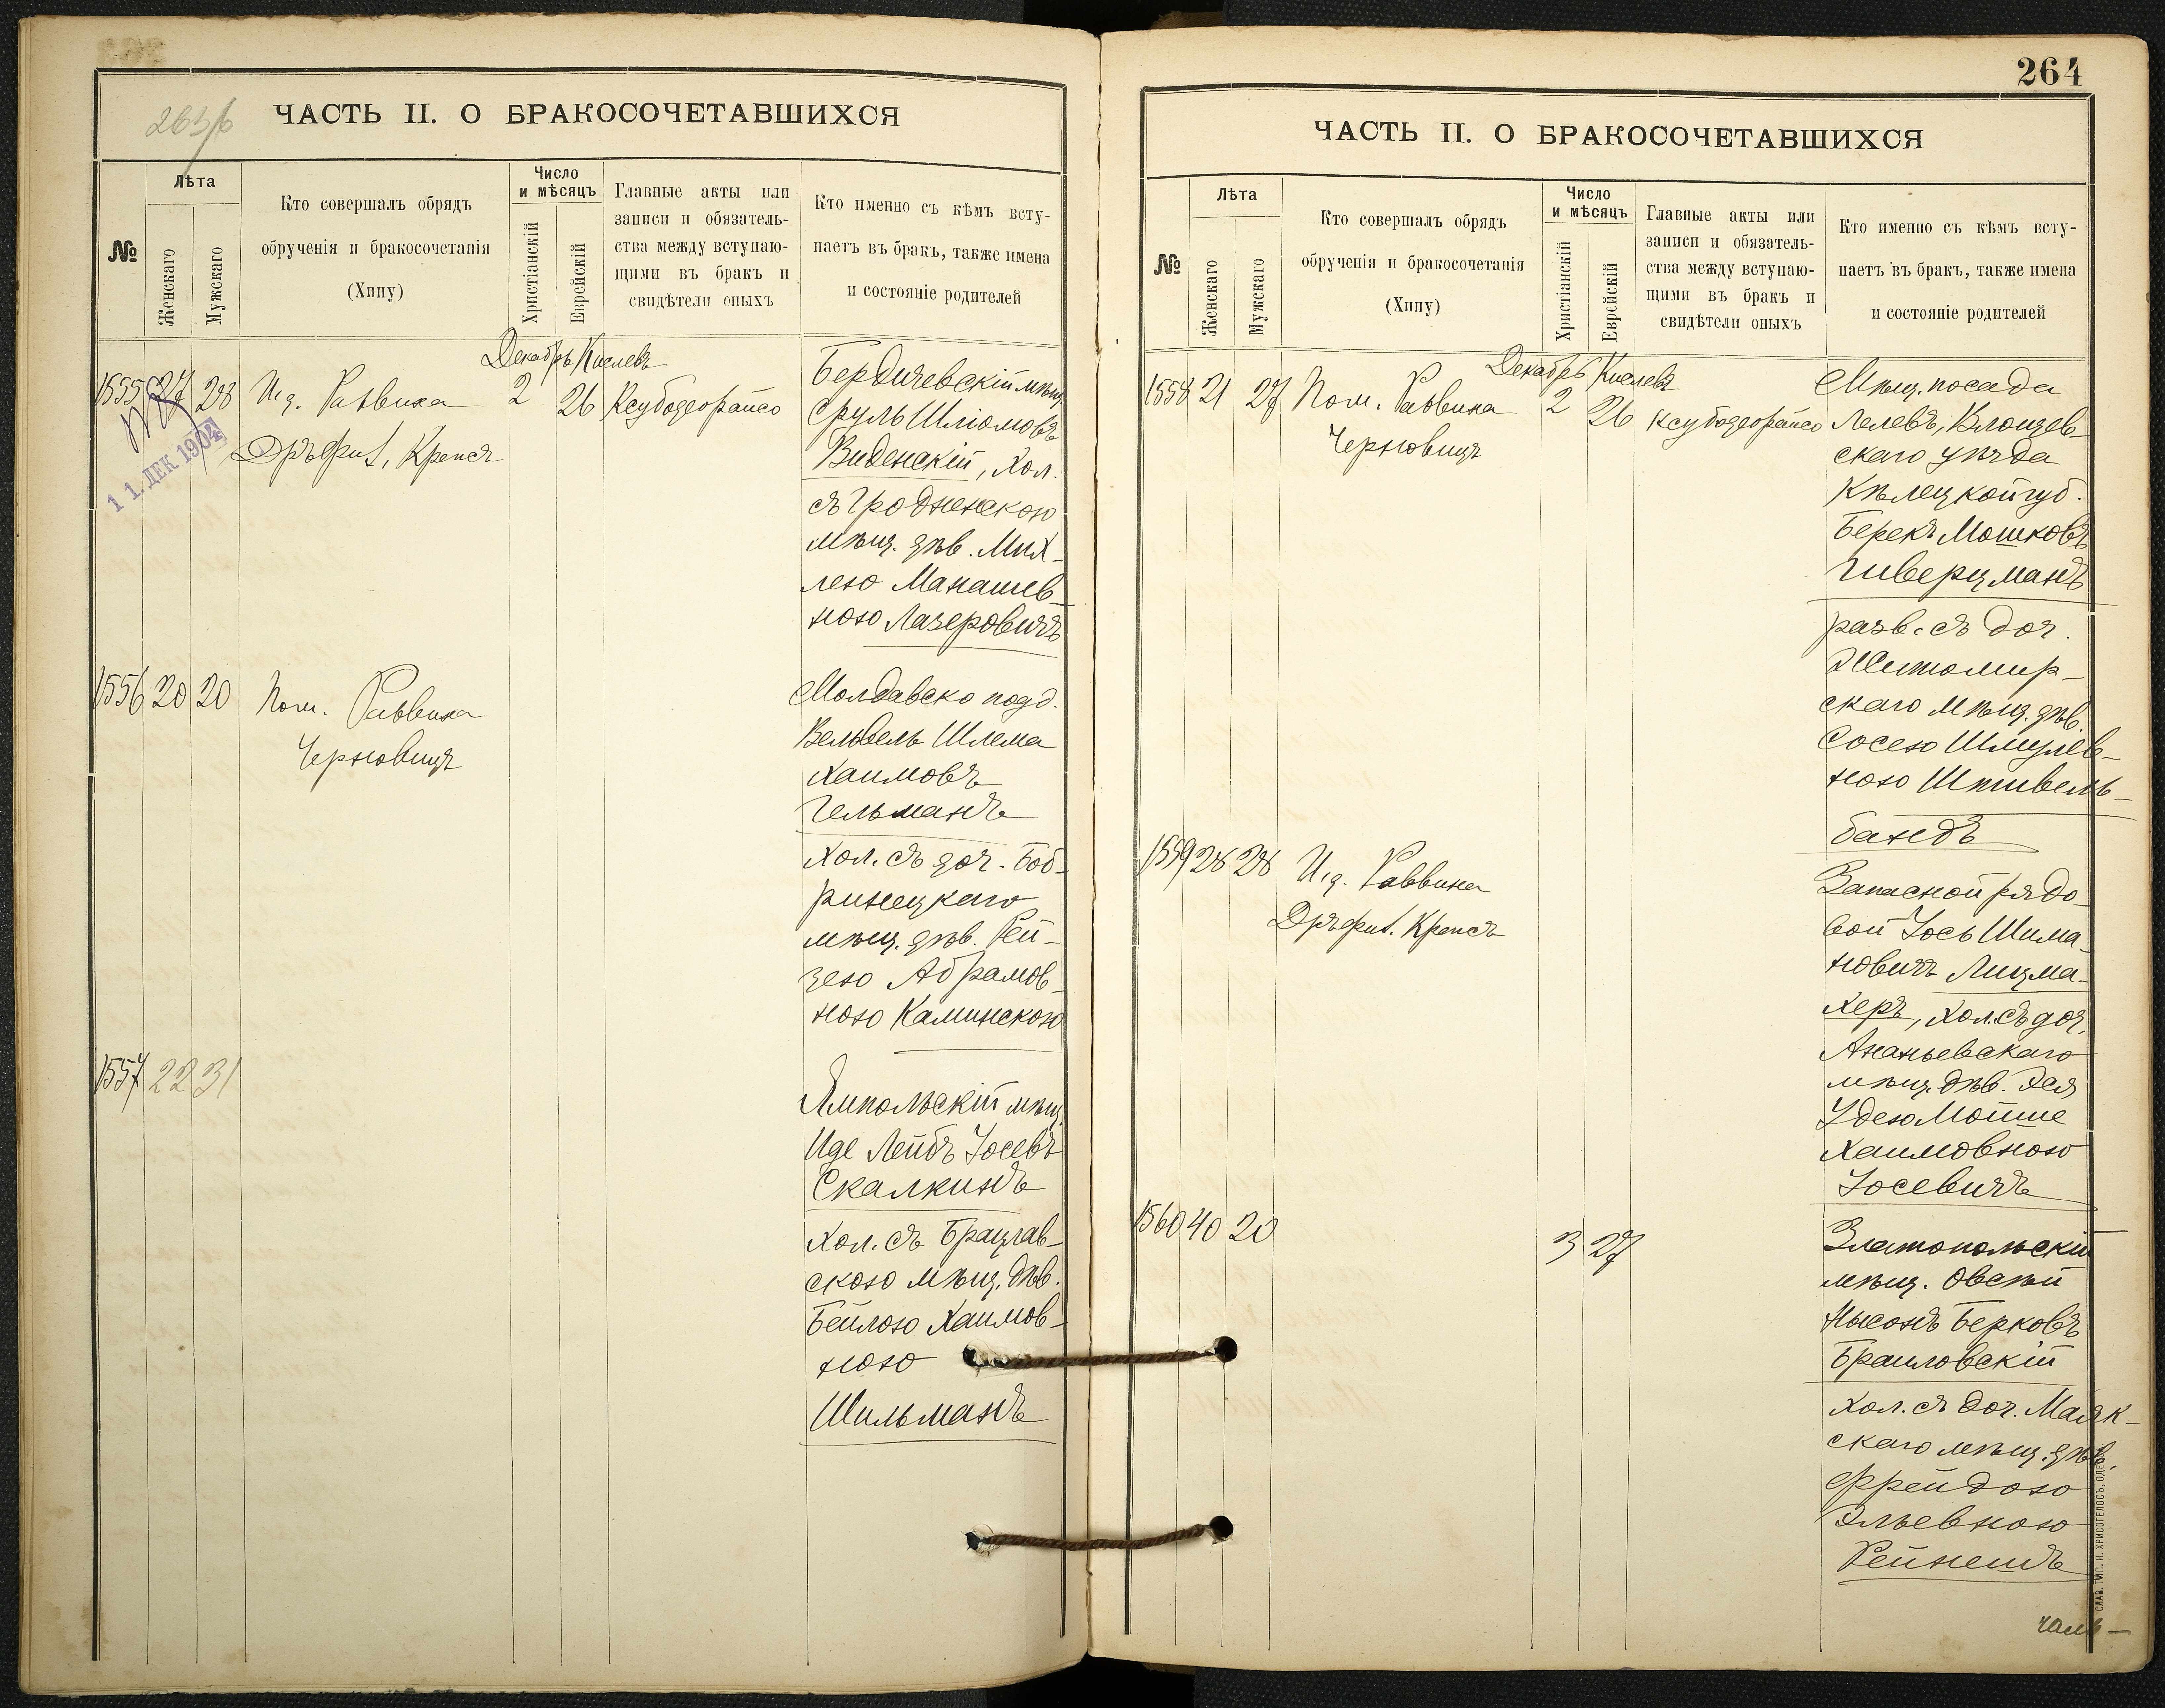 263/б
ЧАСТЬ II. О БРАКОСОЧЕТАВШИХСЯ
№
Лѣта
Женскаго
Мужскаго
Кто совершалъ обрядъ
обрученія и бракосочетанія
(Хипу)
Число
и мѣсяцъ
Христіанскій
Еврейскій
Главные акты или
записи и обязатель-
ства между вступаю-
щими въ бракъ и
свидѣтели оныхъ
Кто именно съ кѣмъ всту-
паетъ въ бракъ, также имена
и состояніе родителей
Декабрь Кислевъ
1555 27 28 И.д. Раввина 2 26 Ксубодеорайсо
Дръ Крепсъ
11. ДЕК 1904
Бердичевскій мѣщ.
Сруль Шліомовъ
Виденскій, хол.
съ Гродненскою
мѣщ. дѣв. Мих-
лею Манашев-
ною Лазеровичъ
1556 20 20 Пом. Раввина
Черновицъ
Молдавско подд.
Вельвель Шлема
Хаимовъ
Гельманъ
хол. съ доч. Боб-
ринецкаго
мѣщ. дѣв. Рей-
зею Абрамов-
ною Каминскою
1557 22 31
Ямпольскій мѣщ.
Иде Лейбъ Іосевъ
Скалкинъ
хол. съ Брацлав-
скою мѣщ. дѣв.
Бейлою Хаимов-
ною
Шильманъ
264
ЧАСТЬ II. О БРАКОСОЧЕТАВШИХСЯ
№
Лѣта
Женскаго
Мужскаго
Кто совершалъ обрядъ
обрученія и бракосочетанія
(Хипу)
Число
и мѣсяцъ
Христіанскій
Еврейскій
Главные акты или
записи и обязатель-
ства между вступаю-
щими въ бракъ и
свидѣтели оныхъ
Кто именно съ кѣмъ всту-
паетъ въ бракъ, также имена
и состояніе родителей
Декабрь Кислевъ
1558 21 27 Пом. Раввина 2 26 Ксубодеорайсо
Черновицъ
Мѣщ. посада
Лелевъ, Влощев-
скаго уѣзда
Кѣлецкой губ.
Берекъ Мошковъ
Гиверцманъ
разв. съ доч.
Житомир-
скаго мѣщ. дѣв.
Сосею Шмулев-
ною Штивель-
бандъ
1559 28 28 И.д. Раввина
Дръ Крепсъ
Запасной рядо-
вой Іось Шима-
новичъ Лицма-
херъ, хол. съ доч.
Ананьевскаго
мѣщ. дѣв. Эся
Удею Мойше
Хаимовною
Іосевичъ
1560 40 20 3 27
Златопольскій
мѣщ. Овсѣй
Нысонъ Берковъ
Браиловскій
хол. съ доч. Маяк-
скаго мѣщ. дѣв.
Фрейдою
Эльевною
Рейнешъ
СЛАВ. ТИП. Н. ХРИСОГЕЛОСЪ, ОДЕССА